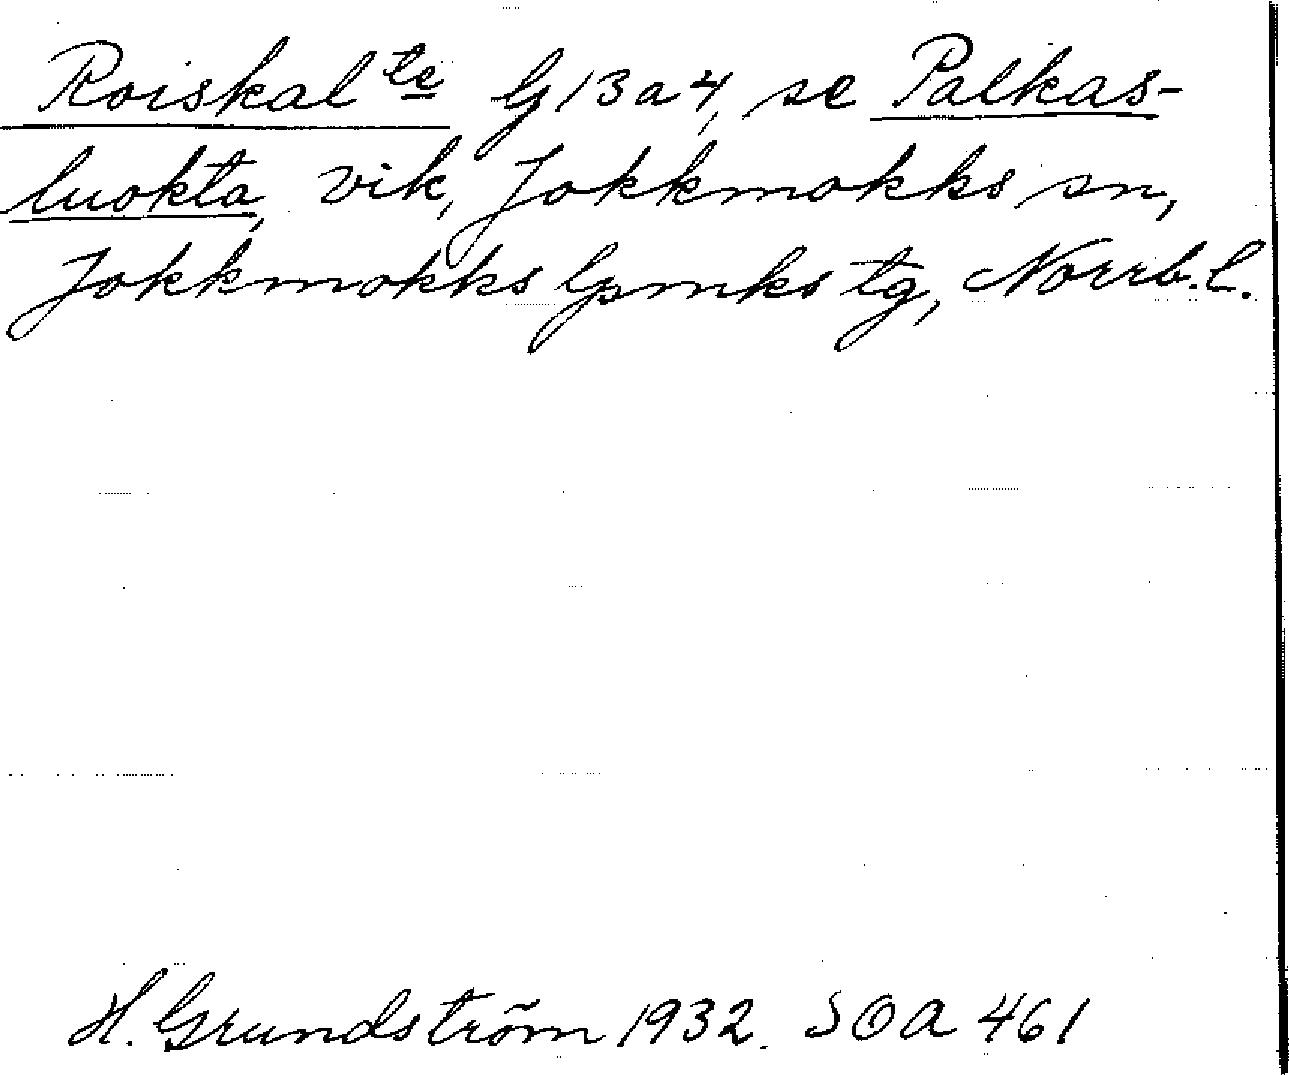 Roiskal te G 13 a 4, se Palkas-
luokta, vik, Jokkmokks sn,
Jokkmokks lpmks tg, Norrb. l.
H. Grundström 1932. SOA 461